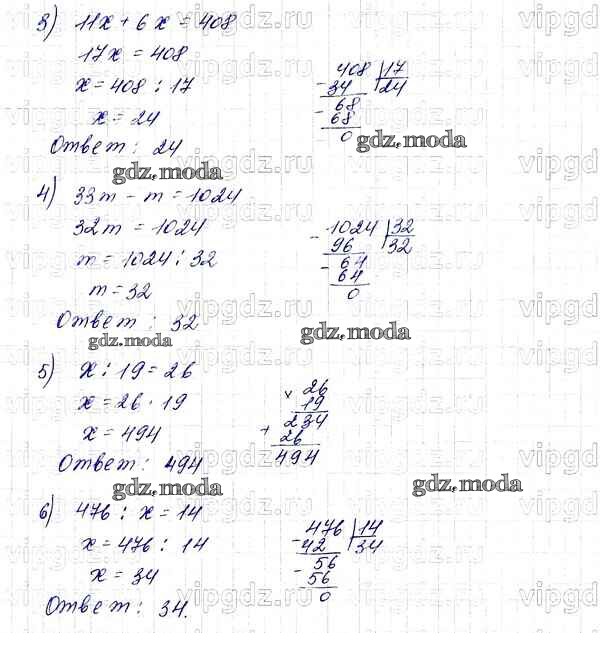 3) 11x + 6x = 408
17x = 408
x = 408 : 17
x = 24
Ответ: 24
408 | 17
- 34 24
68
- 68
0
gdz.moda
gdz.moda
4) 33m - m = 1024
32m = 1024
m = 1024 : 32
m = 32
Ответ: 32
- 1024 | 32
96 32
- 64
64
0
gdz.moda
gdz.moda
5) x : 19 = 26
x = 26 · 19
x = 494
Ответ: 494
× 26
19
+ 234
26
494
gdz.moda
gdz.moda
6) 476 : x = 14
x = 476 : 14
x = 34
Ответ: 34.
- 476 | 14
42 34
- 56
56
0
vipgdz.ru